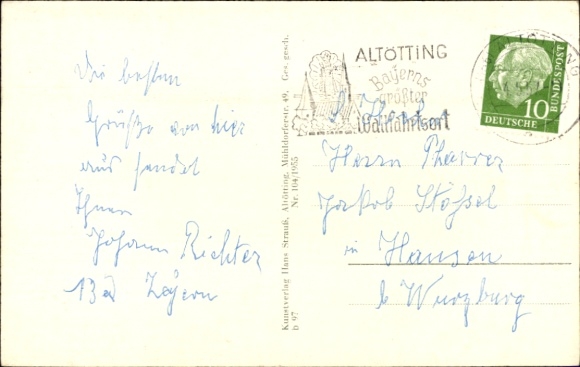 Die besten
Grüße von hier
aus sendet
Ihnen
Johann Richter
13a
Kunstverlag Hans Strauß, Altötting, Mühldorferstr. 49. Ges. gesch.
Nr. 104/1955
b 97
ALTÖTTING
Bayerns
größter
Wallfahrtsort
10
DEUTSCHE
BUNDESPOST
Herrn Pharrer
Jakob Stößel
in Hausen
b Wurzburg